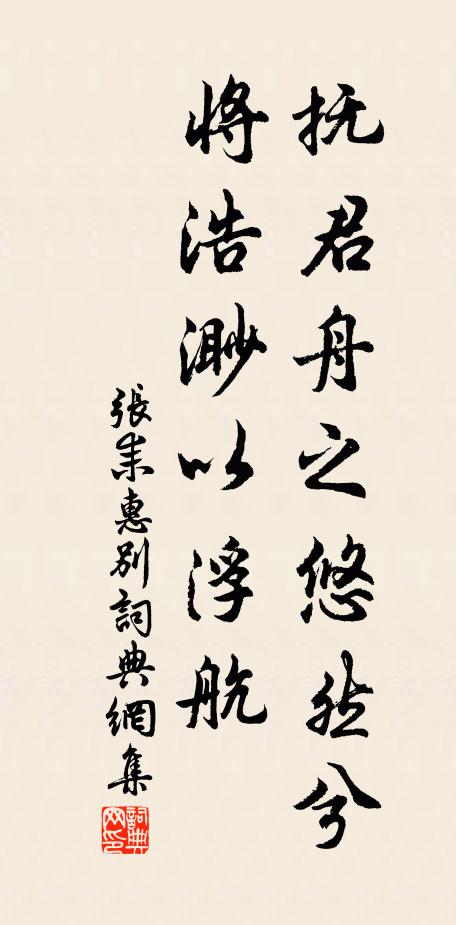 抚君舟之悠然兮
將浩渺以浮航
張耒惠别詞典網集
詞典
网印